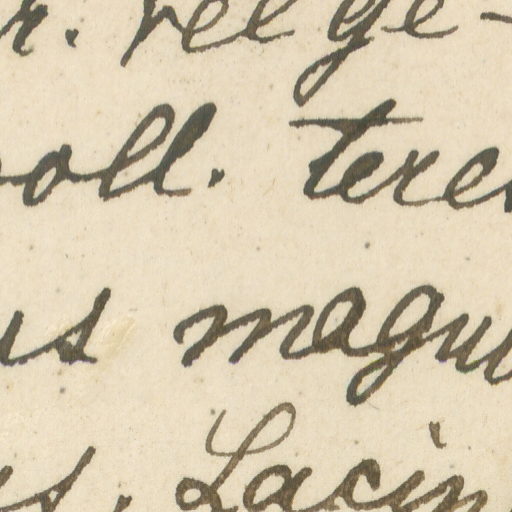 r. vel ge-
oll. tere
us magn
us. Lacin